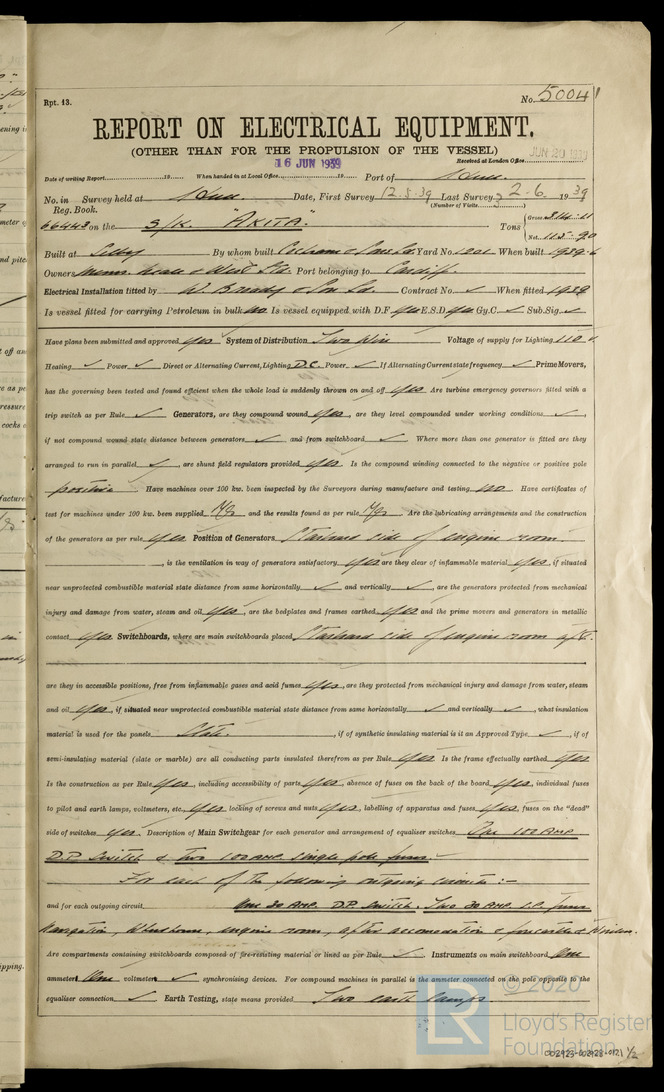 Rpt. 13.
No. 5004
REPORT ON ELECTRICAL EQUIPMENT.
(OTHER THAN FOR THE PROPULSION OF THE VESSEL)
16 JUN 1939
Received at London Office JUN 20 1939
Date of writing Report 19 When handed in at Local Office 19 Port of Hull.
No. in Survey held at Hull Date, First Survey 12.5.39 Last Survey 2-6. 1939
Reg. Book. (Number of Visits)
66443 on the S/K. "AKITA". Tons { Gross 314.11
Net 115.90
Built at Selby By whom built Cochrane & Sons Ld. Yard No. 1201 When built 1939-6
Owners Messrs. Neale & West Ltd. Port belonging to Cardiff.
Electrical Installation fitted by W. Broady & Son Ld. Contract No. ✓ When fitted 1939
Is vessel fitted for carrying Petroleum in bulk no. Is vessel equipped with D.F. yes E.S.D. yes Gy.C. ✓ Sub.Sig. ✓
Have plans been submitted and approved yes System of Distribution Two Wire Voltage of supply for Lighting 110 v.
Heating ✓ Power ✓ Direct or Alternating Current, Lighting D.C. Power ✓ If Alternating Current state frequency ✓ Prime Movers,
has the governing been tested and found efficient when the whole load is suddenly thrown on and off yes Are turbine emergency governors fitted with a
trip switch as per Rule ✓ Generators, are they compound wound yes, are they level compounded under working conditions ✓,
if not compound wound state distance between generators ✓ and from switchboard ✓ Where more than one generator is fitted are they
arranged to run in parallel ✓, are shunt field regulators provided yes. Is the compound winding connected to the negative or positive pole
positive Have machines over 100 kw. been inspected by the Surveyors during manufacture and testing no. Have certificates of
test for machines under 100 kw. been supplied and the results found as per rule Are the lubricating arrangements and the construction
of the generators as per rule yes Position of Generators Starboard side of engine room.
, is the ventilation in way of generators satisfactory yes are they clear of inflammable material yes, if situated
near unprotected combustible material state distance from same horizontally ✓ and vertically ✓, are the generators protected from mechanical
injury and damage from water, steam and oil yes, are the bedplates and frames earthed yes and the prime movers and generators in metallic
contact yes. Switchboards, where are main switchboards placed Starboard side of engine room aft.
are they in accessible positions, free from inflammable gases and acid fumes yes, are they protected from mechanical injury and damage from water, steam
and oil yes, if situated near unprotected combustible material state distance from same horizontally ✓ and vertically ✓, what insulation
material is used for the panels Slate., if of synthetic insulating material is it an Approved Type ✓, if of
semi-insulating material (slate or marble) are all conducting parts insulated therefrom as per Rule yes Is the frame effectually earthed yes
Is the construction as per Rule yes, including accessibility of parts yes, absence of fuses on the back of the board yes, individual fuses
to pilot and earth lamps, voltmeters, etc., yes, locking of screws and nuts yes, labelling of apparatus and fuses yes, fuses on the "dead"
side of switches yes. Description of Main Switchgear for each generator and arrangement of equaliser switches One 100 AMP
D.P. Switch & two 100 AMP. single pole fuses.
For each of the following outgoing circuits:-
and for each outgoing circuit, One 30 AMP. D.P. Switch. Two 30 AMP. S.P. fuses
Navigation, Wheelhouse, engine room, after accomodation & forecastle & Wireless.
Are compartments containing switchboards composed of fire-resisting material or lined as per Rule ✓ Instruments on main switchboard One
ammeter One voltmeter ✓ synchronising devices. For compound machines in parallel is the ammeter connected on the pole opposite to the
equaliser connection ✓ Earth Testing, state means provided Two earth lamps.
© 2020
LR
Lloyd's Register
Foundation
002923-002928-0121 1/2